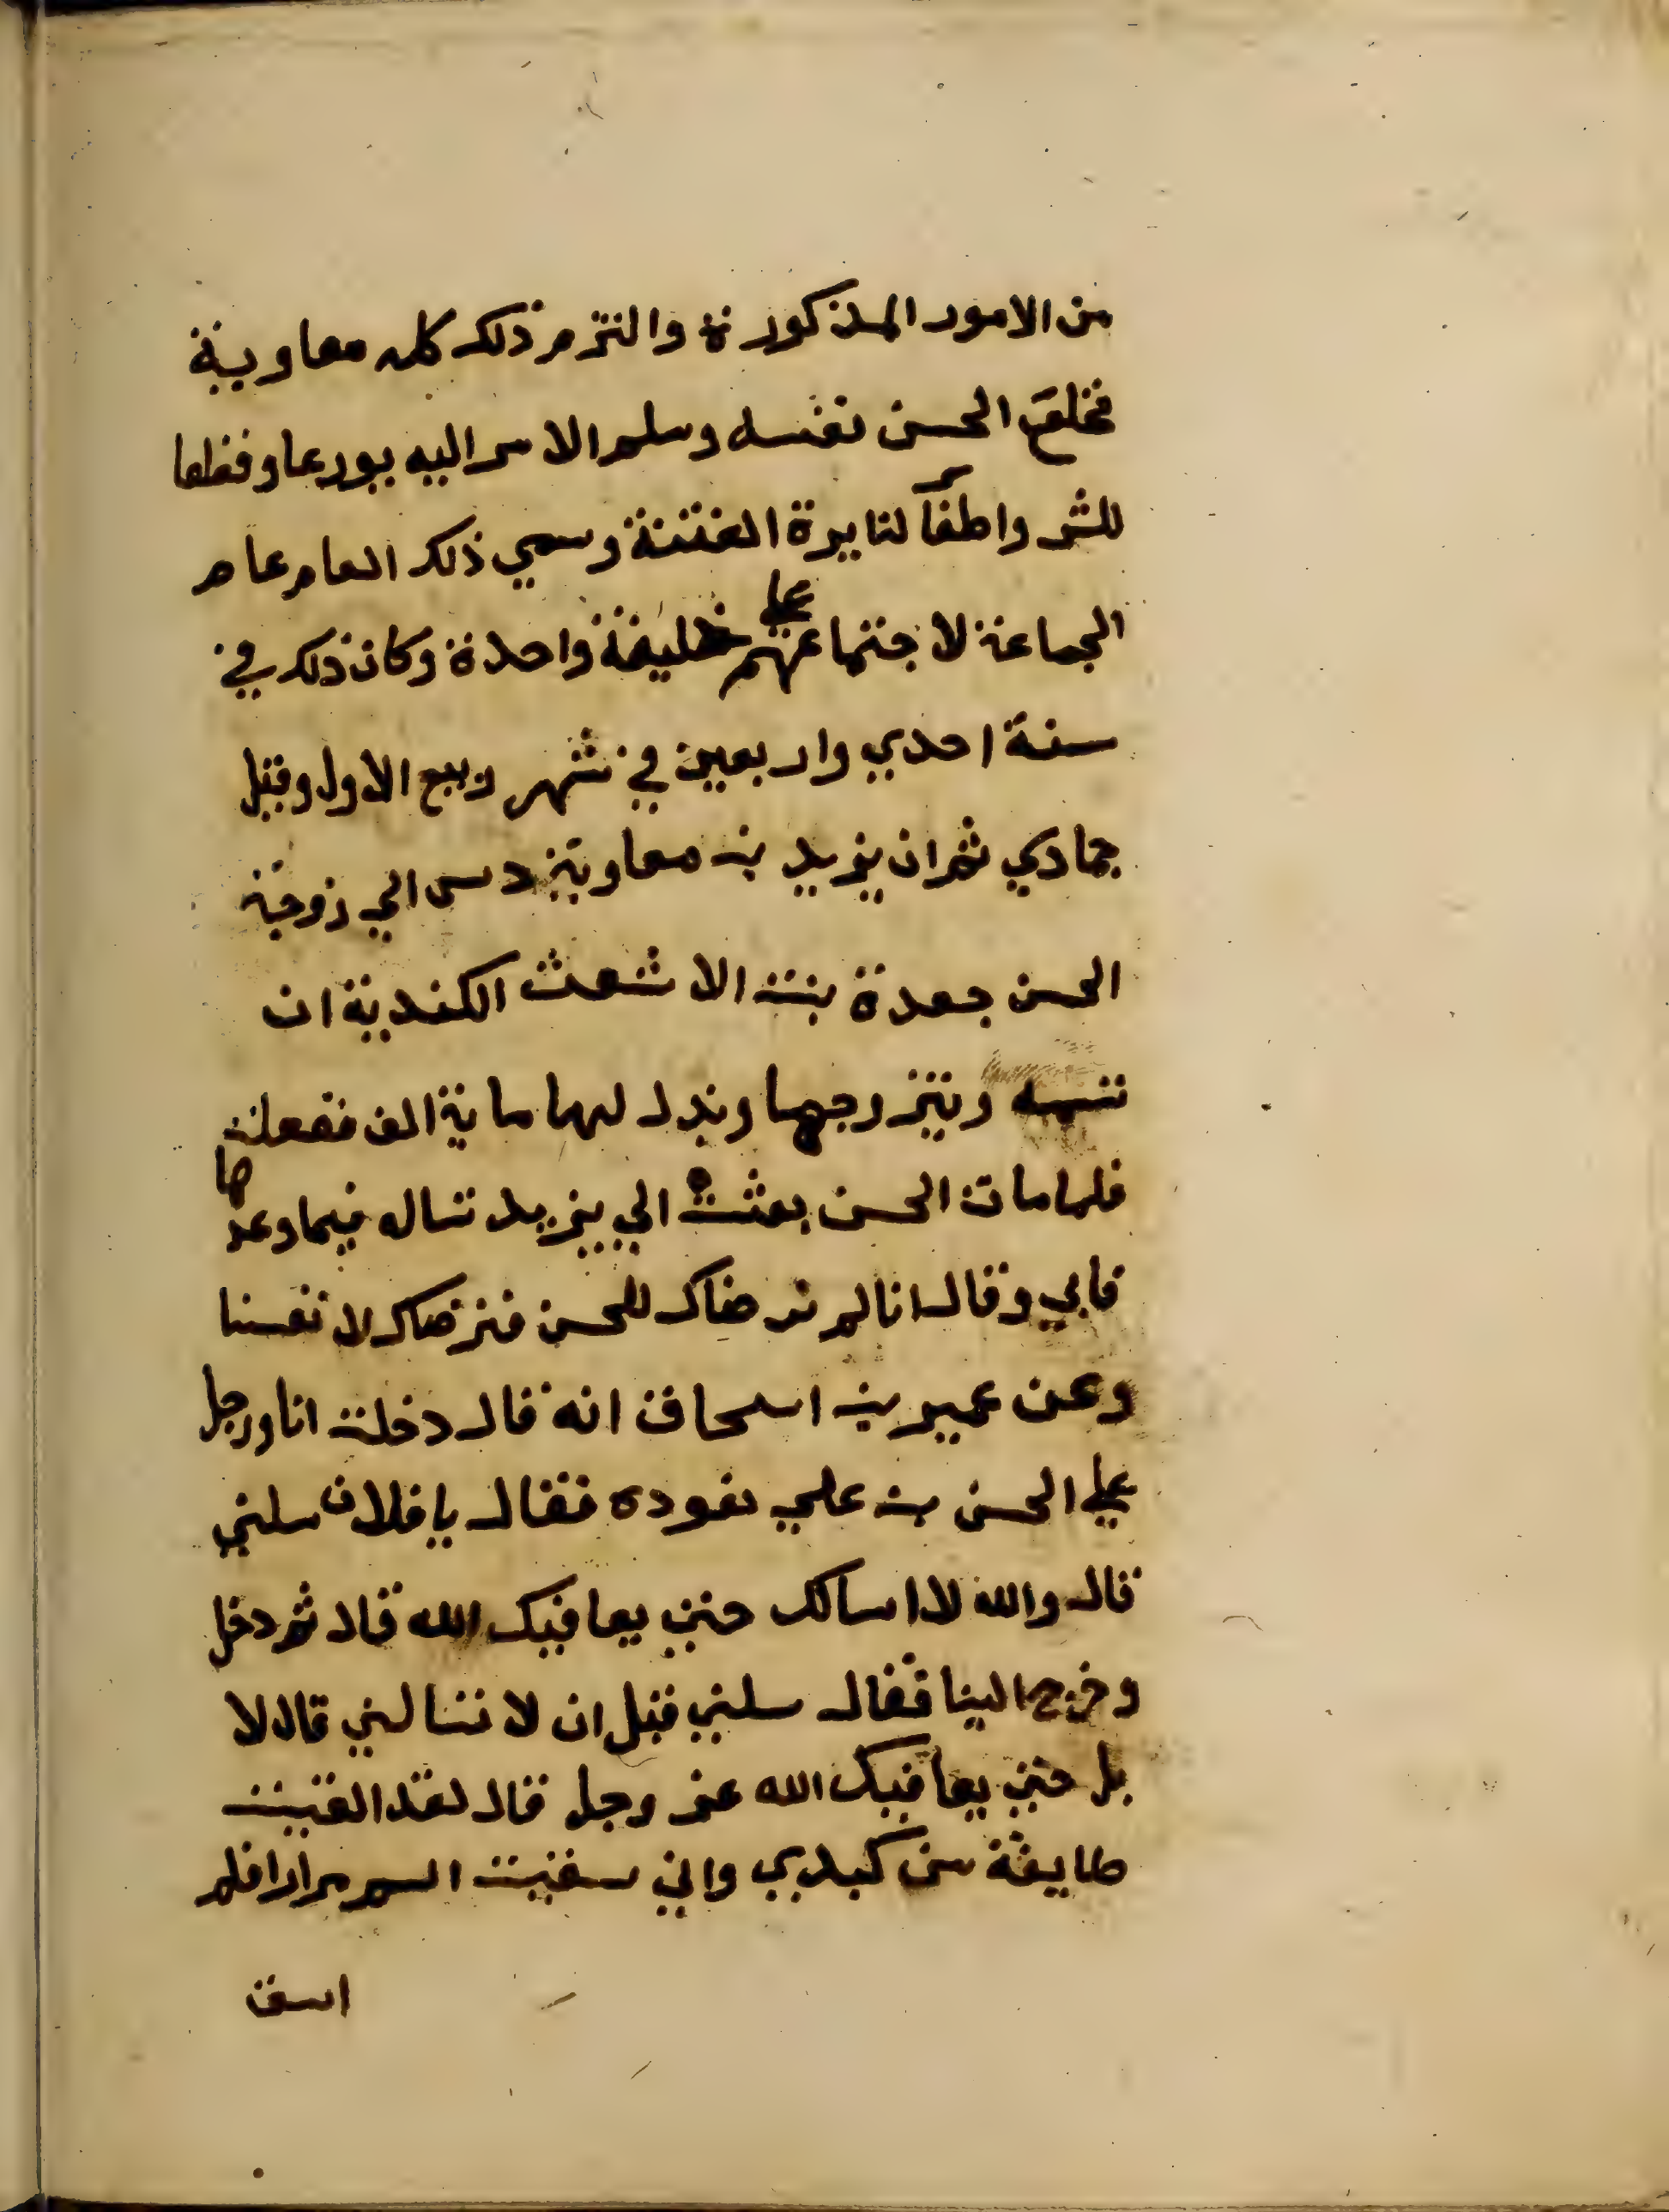 من الامور المذكورة والتزم ذلك كله معاوية
فخلع الحسن نفسه وسلم الامر اليه تورعا وقطعا
للشر واطفآ لنايرة الفتنة وسمي ذلك العام عام
الجماعة لاجتماعهم على خليفة واحدة وكان ذلك في
سنة احدي واربعين في شهر ربيع الاول وقيل
جمادي ثم ان يزيد بن معاوية دس الي زوجة
الحسن جعدة بنت الاشعث الكندية ان
تسمه ويتزوجها وبذل لها ماية الف ففعلت
فلما مات الحسن بعثت الي يزيد تساله فيما وعدها
فابي وقال انا لم نرضاك للحسن فنرضاك لانفسنا
وعن عمير بن اسحاق انه قال دخلت انا ورجل
علي الحسن بن علي نعوده فقال يا فلان سلني
قال والله لا اسالك حتي يعافيك الله قال ثم دخل
وخرج الينا فقال سلني قبل ان لا تسالني قال لا
بل حتي يعافيك الله عز وجل قال لقد القيت
طايفة من كبدي واني سقيت السم مرارا فلم
اسق